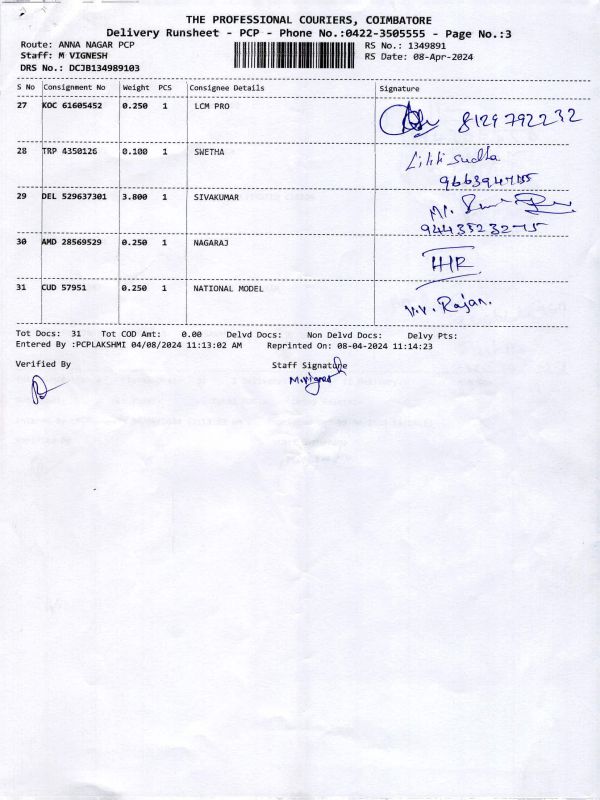 THE PROFESSIONAL COURIERS, COIMBATORE
Delivery Runsheet - PCP - Phone No.:0422-3505555 - Page No.:3
Route: ANNA NAGAR PCP RS No.: 1349891
Staff: M VIGNESH RS Date: 08-Apr-2024
DRS No.: DCJB134989103
S No Consignment No Weight PCS Consignee Details Signature
27 KOC 61605452 0.250 1 LCM PRO 8129792232
28 TRP 4350126 0.100 1 SWETHA
29 DEL 529637301 3.800 1 SIVAKUMAR Mr.
9443523275
30 AMD 28569529 0.250 1 NAGARAJ
31 CUD 57951 0.250 1 NATIONAL MODEL V.V. Rajan.
Tot Docs: 31 Tot COD Amt: 0.00 Delvd Docs: Non Delvd Docs: Delvy Pts:
Entered By :PCPLAKSHMI 04/08/2024 11:13:02 AM Reprinted On: 08-04-2024 11:14:23
Verified By Staff Signature
M.Vignesh